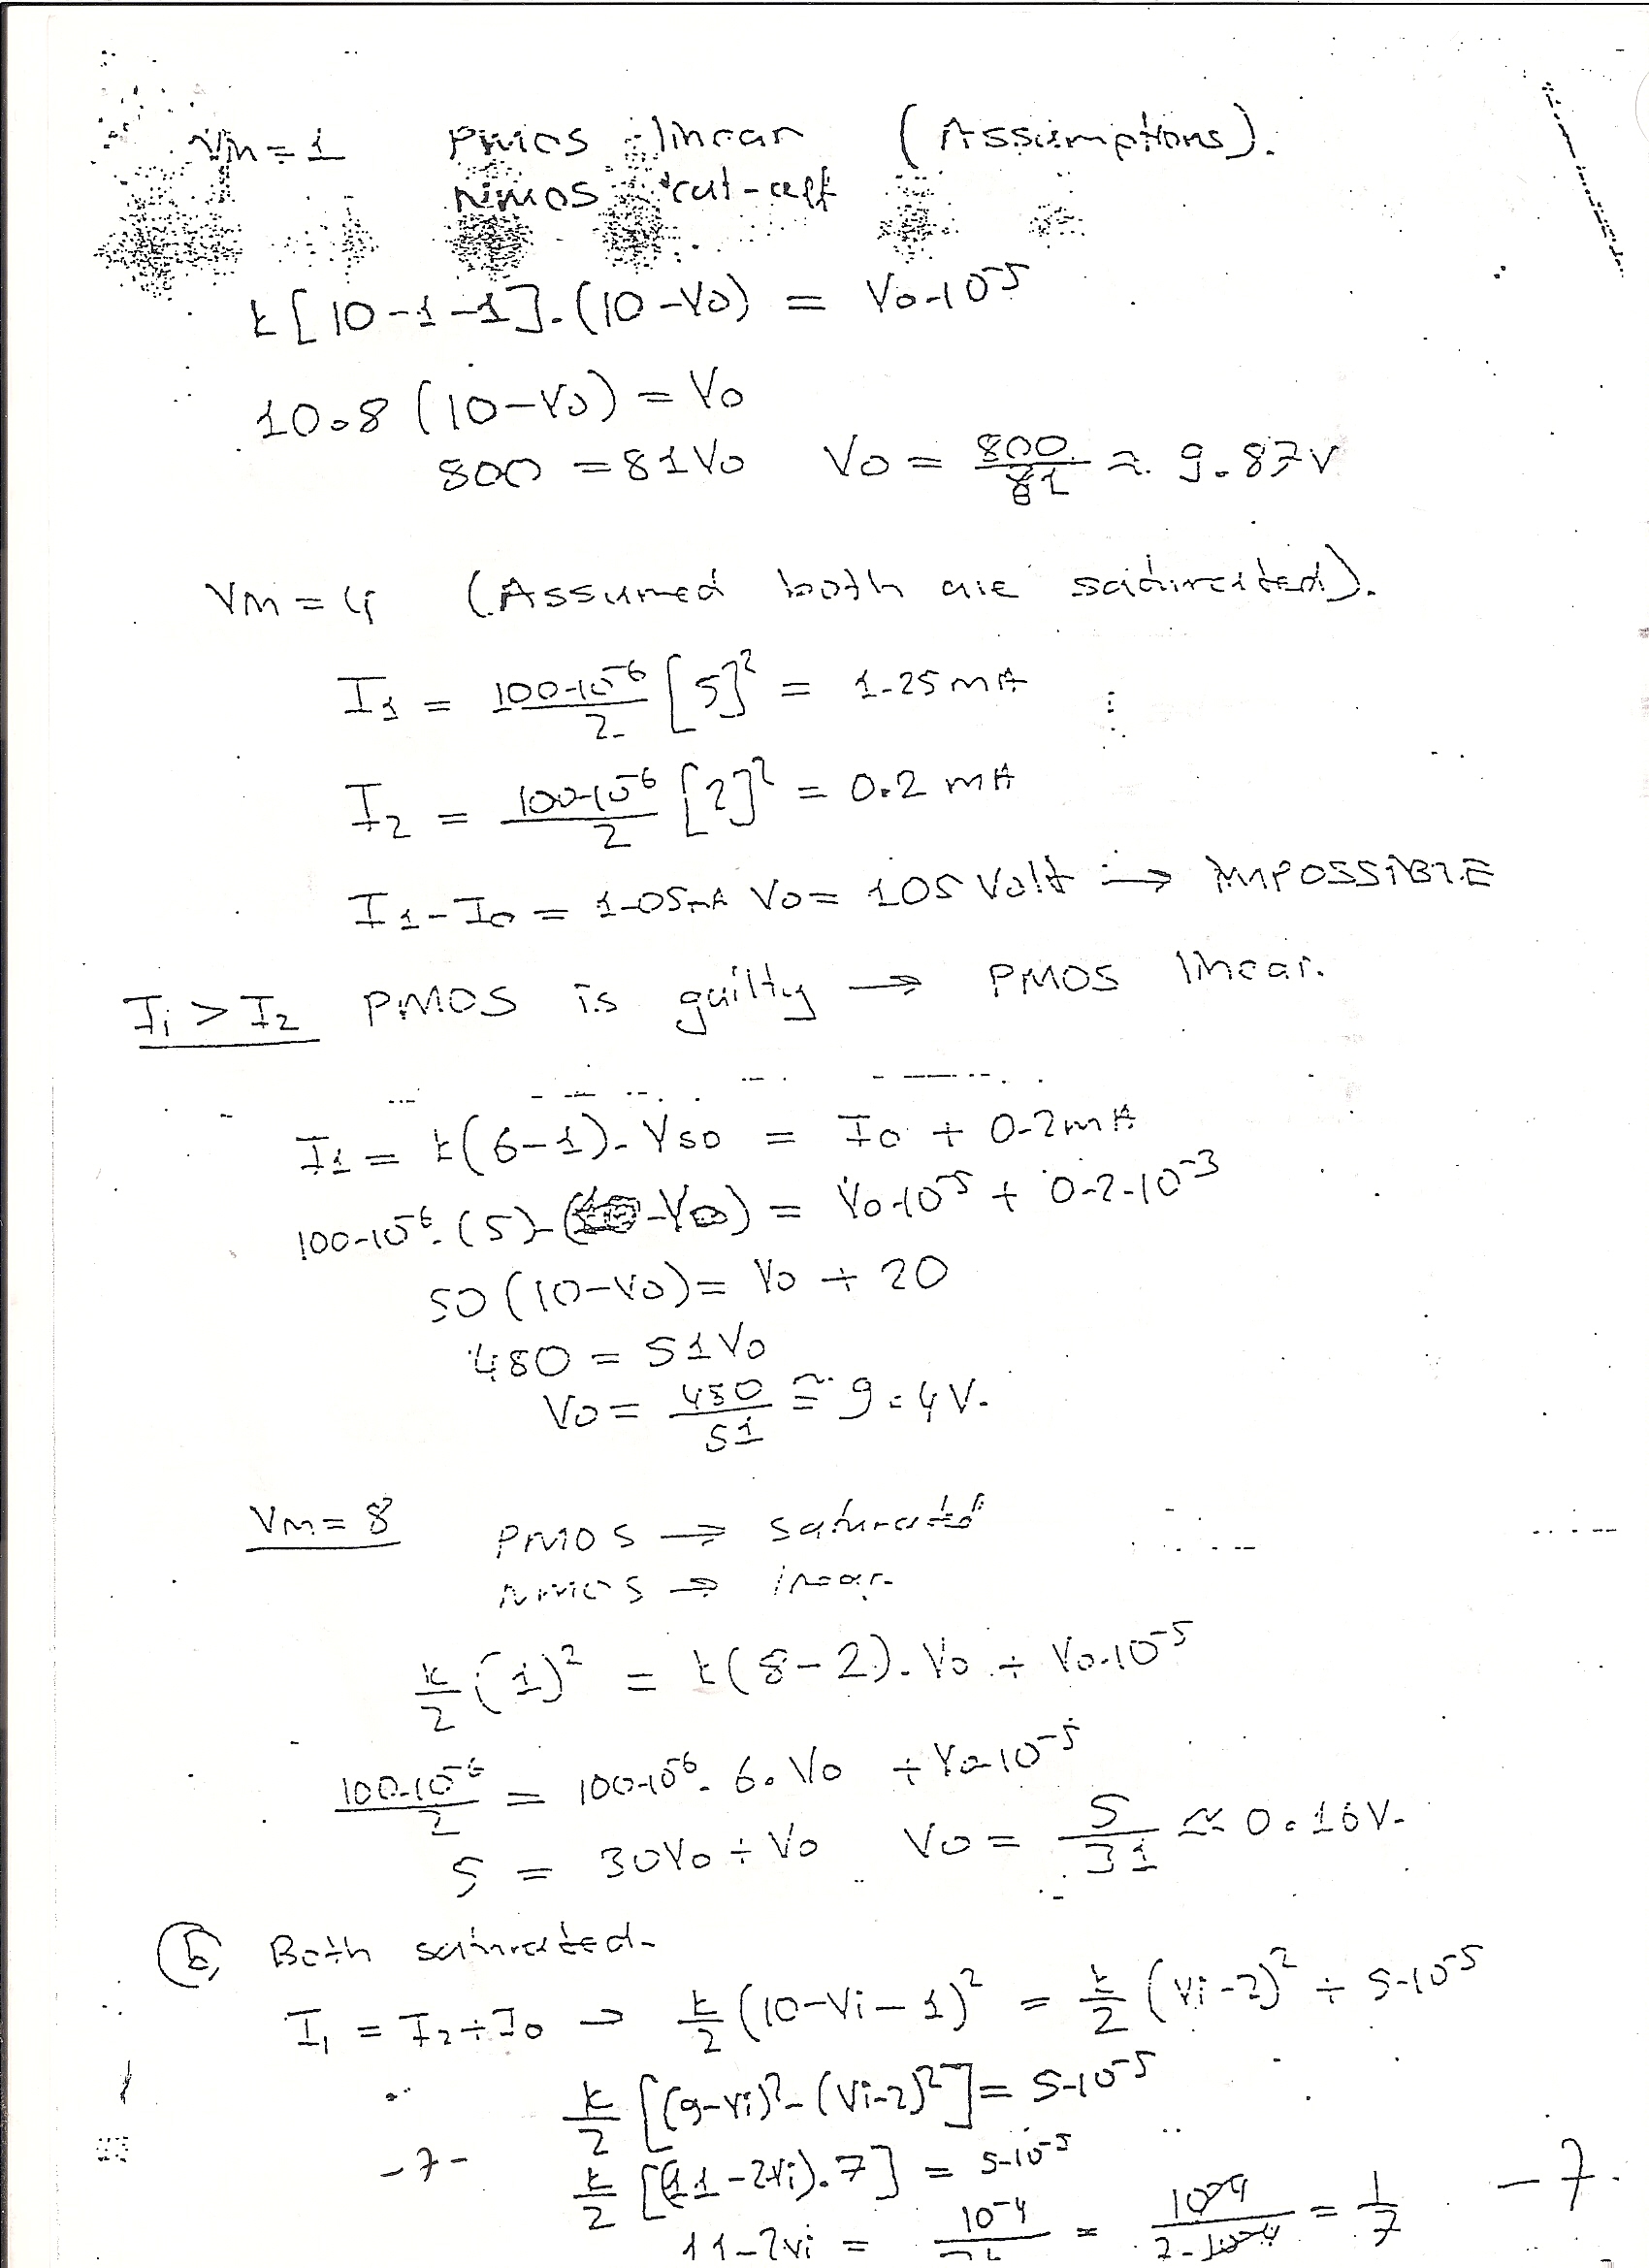 Vin = 1 PMOS : linear (Assumptions).
NMOS : cut-off
k[10-1-1].(10-Vo) = Vo.10^-5
10.8 (10-Vo) = Vo
800 = 81Vo Vo = 800/81 ≈ 9.87V
Vin = 4 (Assumed both are saturated).
I1 = 100.10^-6/2 [5]^2 = 1.25mA
I2 = 100.10^-6/2 [2]^2 = 0.2 mA
I1-Io = 1.05mA Vo = 105 Volt → IMPOSSIBLE
I1 > I2 PMOS is guilty → PMOS linear.
I1 = k(6-1).VSD = Io + 0.2mA
100.10^-6.(5).( -Vo) = Vo.10^-5 + 0.2.10^-3
50(10-Vo) = Vo + 20
480 = 51Vo
Vo = 480/51 ≅ 9.4V.
Vin = 8 PMOS → saturated
NMOS → linear.
k/2 (1)^2 = k(8-2).Vo + Vo.10^-5
100.10^-6/2 = 100.10^-6.6.Vo + Vo.10^-5
5 = 30Vo + Vo Vo = 5/31 ≈ 0.16V.
b) Both saturated.
I1 = I2+Io → k/2 (10-Vi-1)^2 = k/2 (Vi-2)^2 + 5.10^-5
k/2 [(9-Vi)^2-(Vi-2)^2] = 5.10^-5
-7- k/2 [(11-2Vi).7] = 5.10^-5
11-2Vi = 10^-4/7k = 10^-4/7.10^-4 = 1/7 -7.